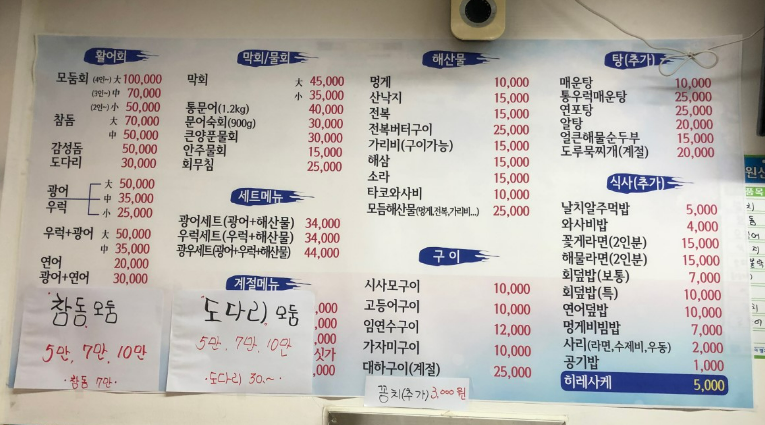 활어회
모둠회 (4인~) 大 100,000
(3인~) 中 70,000
(2인~) 小 50,000
참돔 大 70,000
中 50,000
감성돔 50,000
도다리 30,000
광어 우럭 大 50,000
中 35,000
小 25,000
우럭+광어 大 50,000
中 35,000
연어 20,000
광어+연어 30,000
참돔 모둠
5만, 7만, 10만
·참돔 7만·
막회/물회
막회 大 45,000
小 35,000
통문어(1.2kg) 40,000
문어숙회(900g) 30,000
큰양푼물회 30,000
안주물회 15,000
회무침 25,000
세트메뉴
광어세트(광어+해산물) 34,000
우럭세트(우럭+해산물) 34,000
광우세트(광어+우럭+해산물) 44,000
계절메뉴
,000
,000
싯가
,000
도다리 모둠
5만, 7만, 10만
·도다리 30.~·
해산물
멍게 10,000
산낙지 15,000
전복 15,000
전복버터구이 25,000
가리비(구이가능) 15,000
해삼 15,000
소라 15,000
타코와사비 10,000
모듬해산물(멍게,전복,가리비...) 25,000
구이
시사모구이 10,000
고등어구이 10,000
임연수구이 12,000
가자미구이 10,000
대하구이(계절) 25,000
꽁치(추가) 3,000원
탕(추가)
매운탕 10,000
통우럭매운탕 25,000
연포탕 25,000
알탕 20,000
얼큰해물순두부 15,000
도루묵찌개(계절) 20,000
식사(추가)
날치알주먹밥 5,000
와사비밥 4,000
꽃게라면(2인분) 15,000
해물라면(2인분) 15,000
회덮밥(보통) 7,000
회덮밥(특) 10,000
연어덮밥 10,000
멍게비빔밥 7,000
사리(라면,수제비,우동) 2,000
공기밥 1,000
히레사케 5,000
원산
품목